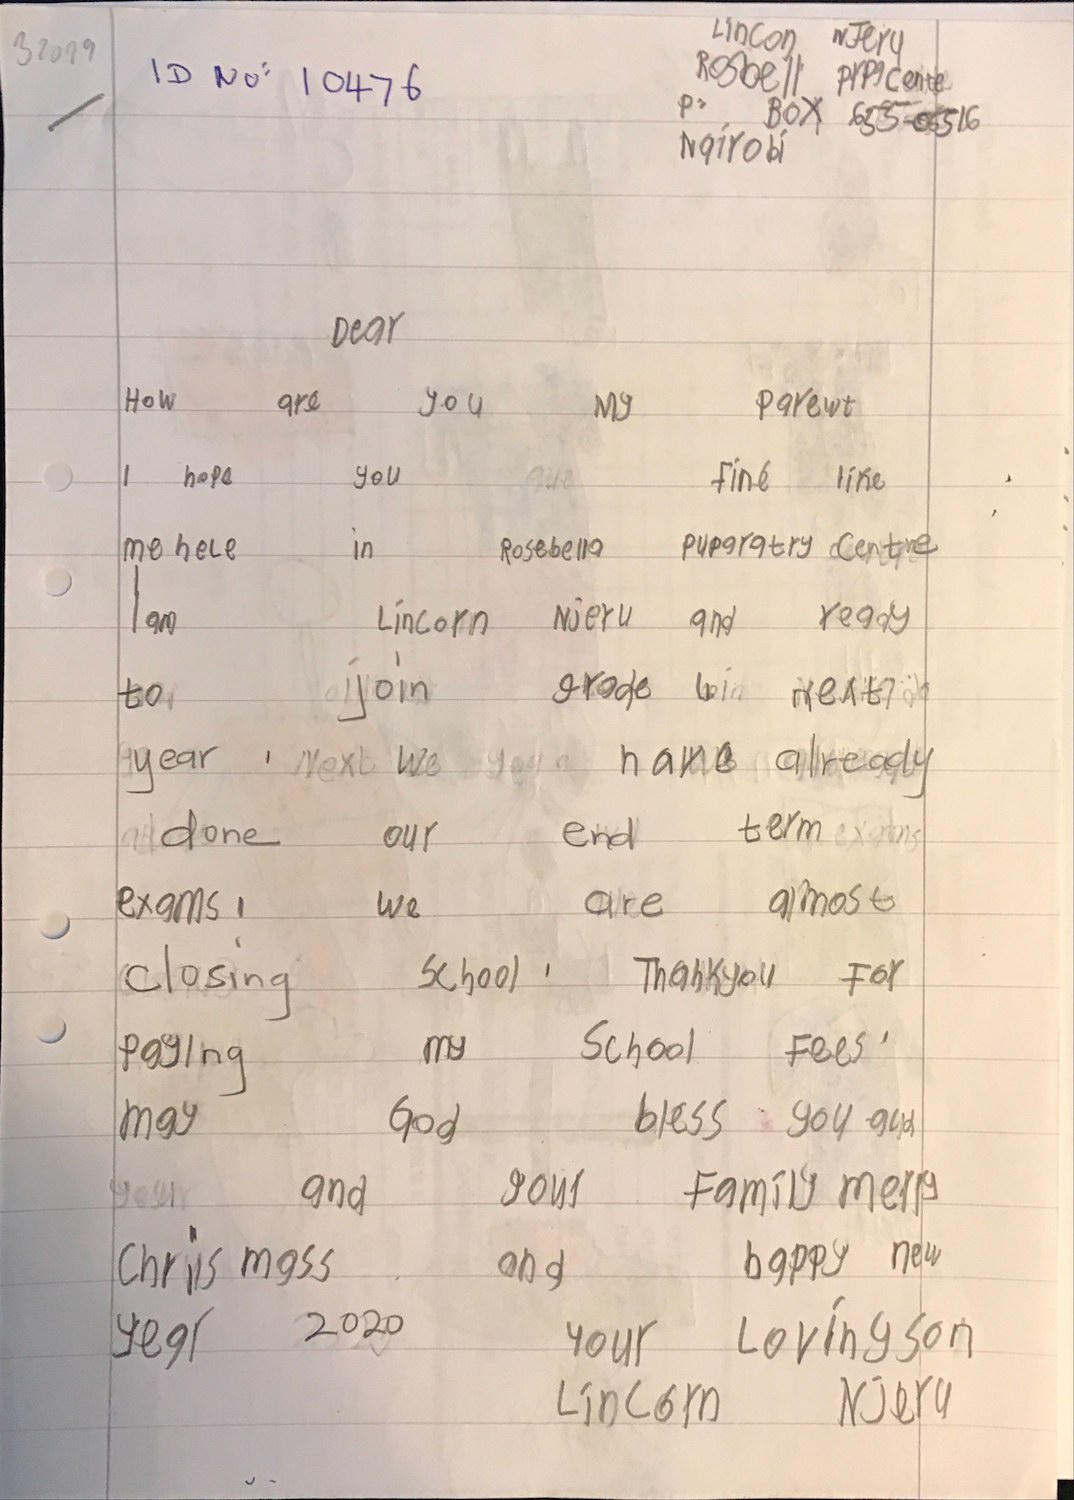 32099
ID No: 10476
Lincon NJery
Rosbell prpicente
P: BOX 655-06516
Nairobi
Dear
How are you My parewt
I hope you fine like
me here in Rosebella puparatry centre
I am Lincorn NJeru and ready
to ijoin grade next
year . we have already
done our end term
exams, we are almost
closing school. Thankyou For
paying my School Fees.
may God bless you and
and your Family merry
Chriismass and happy new
year 2020 your Lovingson
LinCorn NJeru